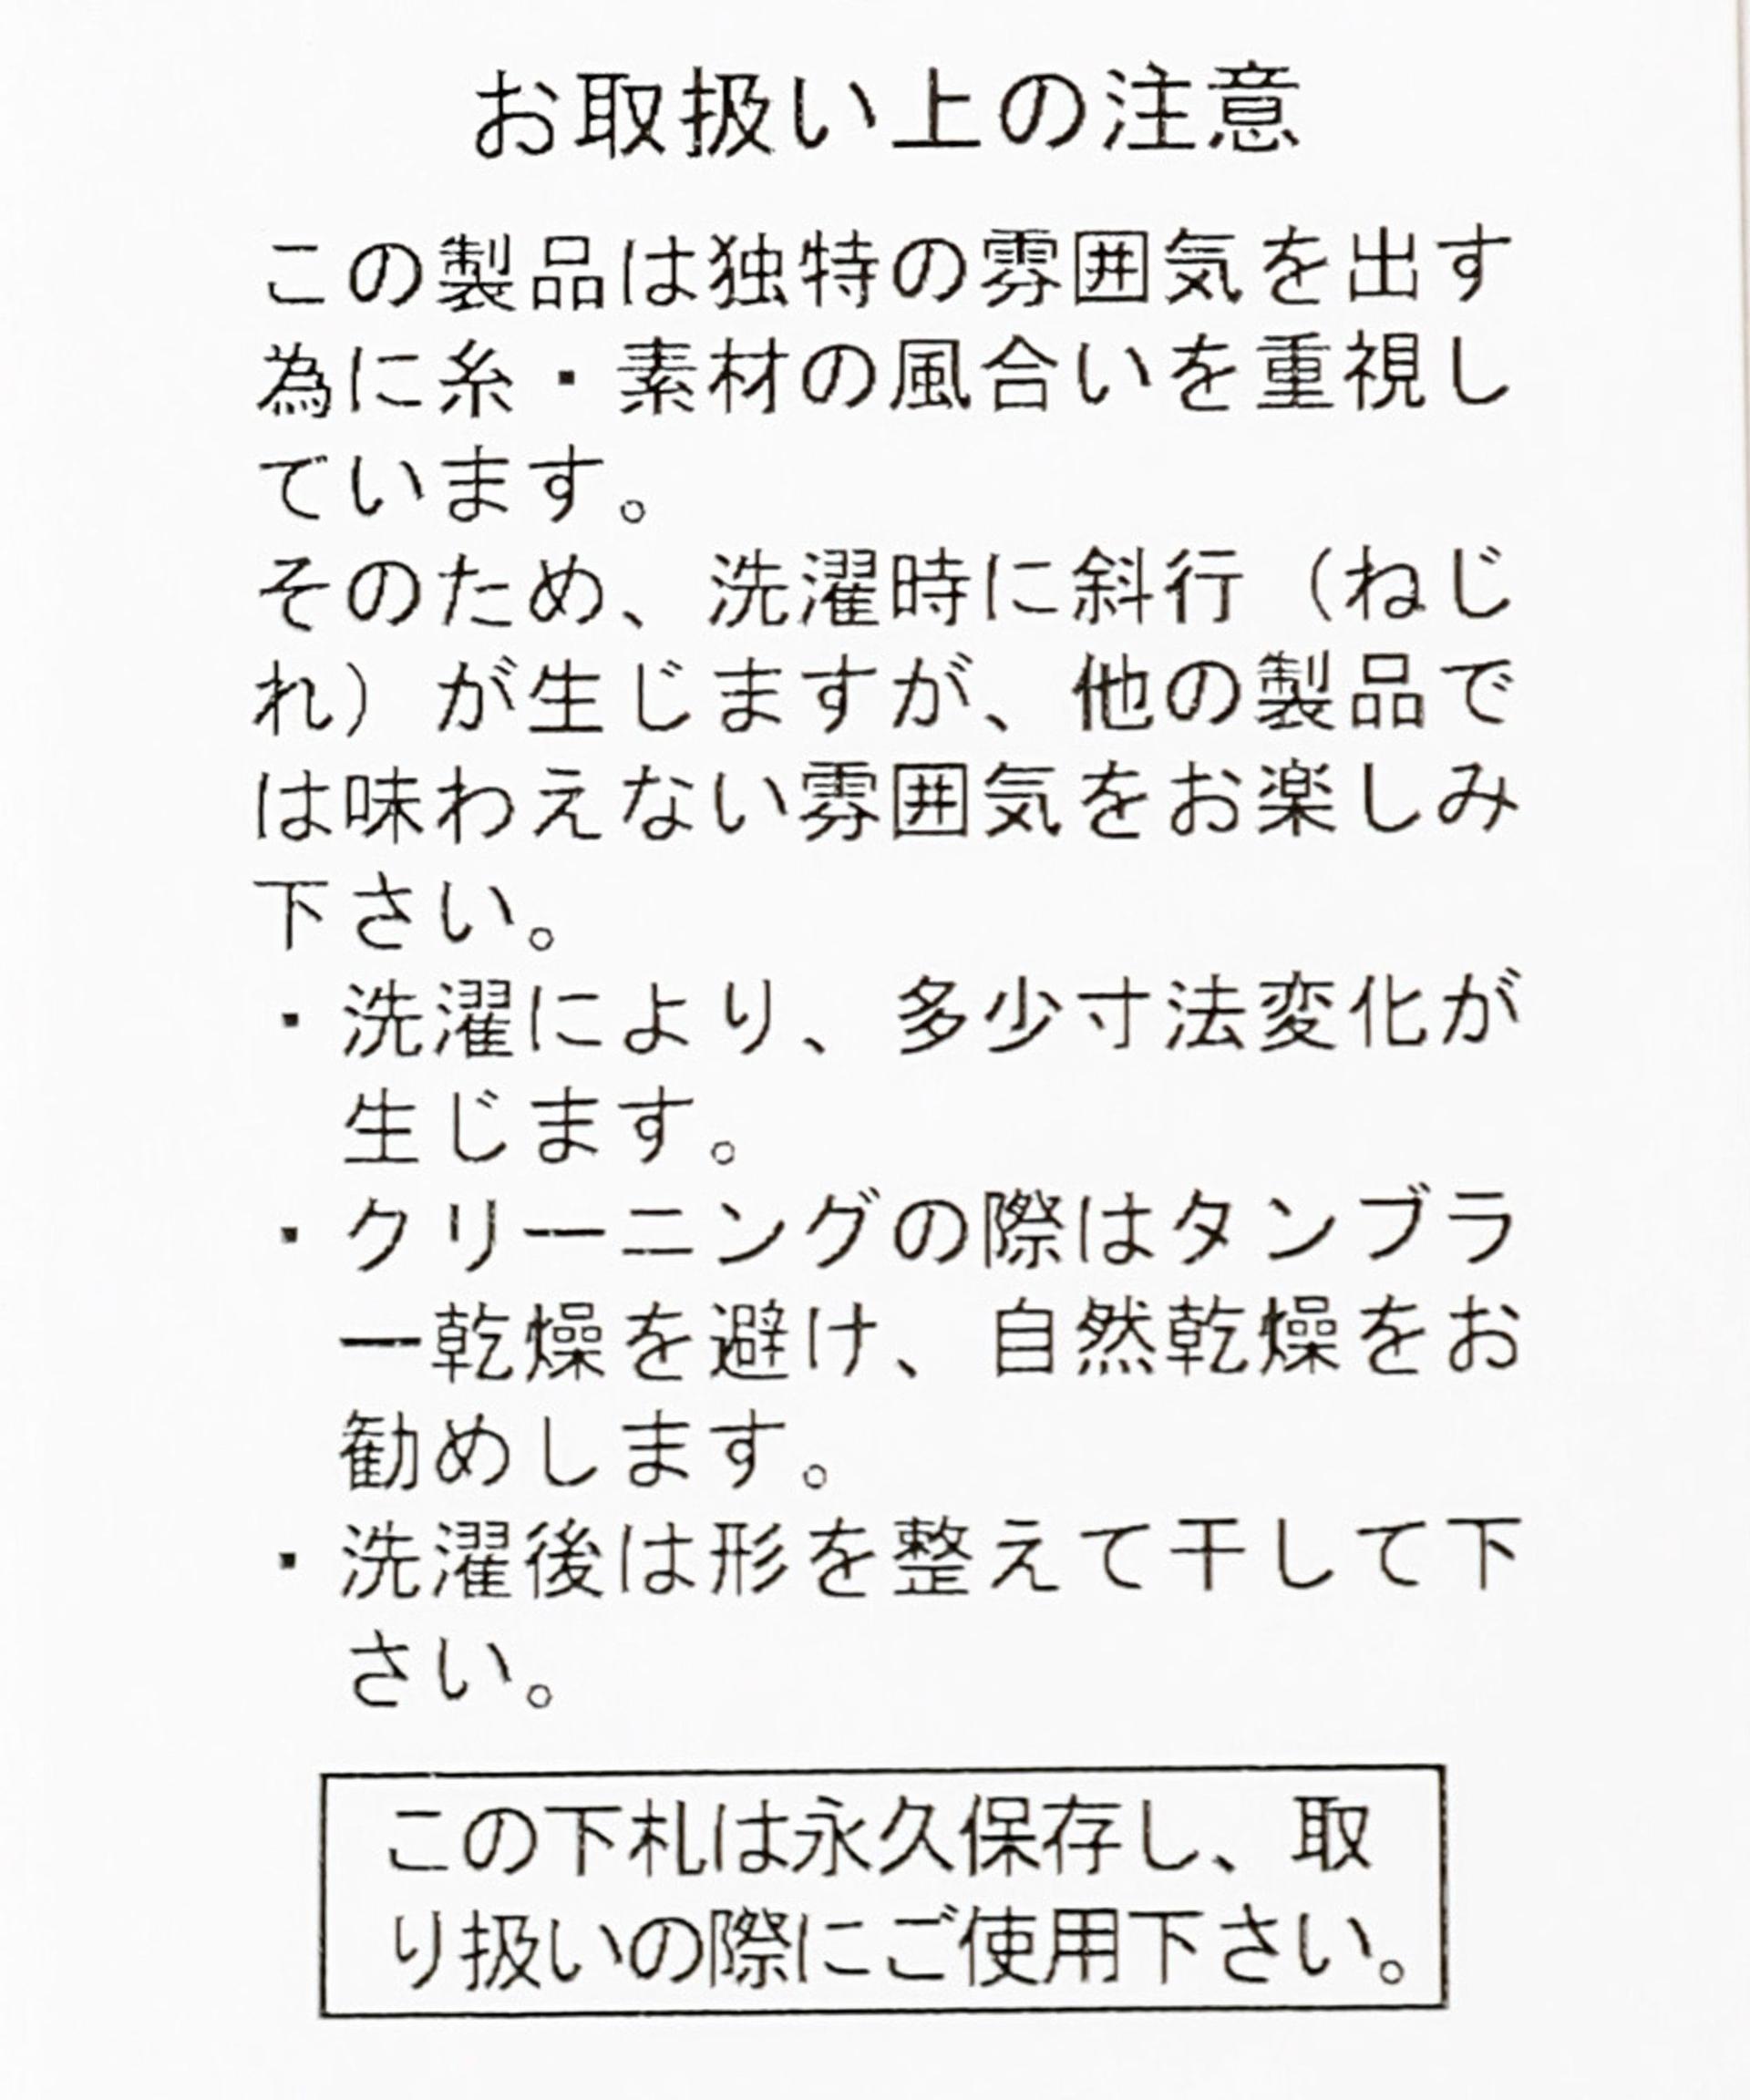 お取扱い上の注意
この製品は独特の雰囲気を出す
為に糸・素材の風合いを重視し
ています。
そのため、洗濯時に斜行（ねじ
れ）が生じますが、他の製品で
は味わえない雰囲気をお楽しみ
下さい。
・洗濯により、多少寸法変化が
生じます。
・クリーニングの際はタンブラ
ー乾燥を避け、自然乾燥をお
勧めします。
・洗濯後は形を整えて干して下
さい。
この下札は永久保存し、取
り扱いの際にご使用下さい。